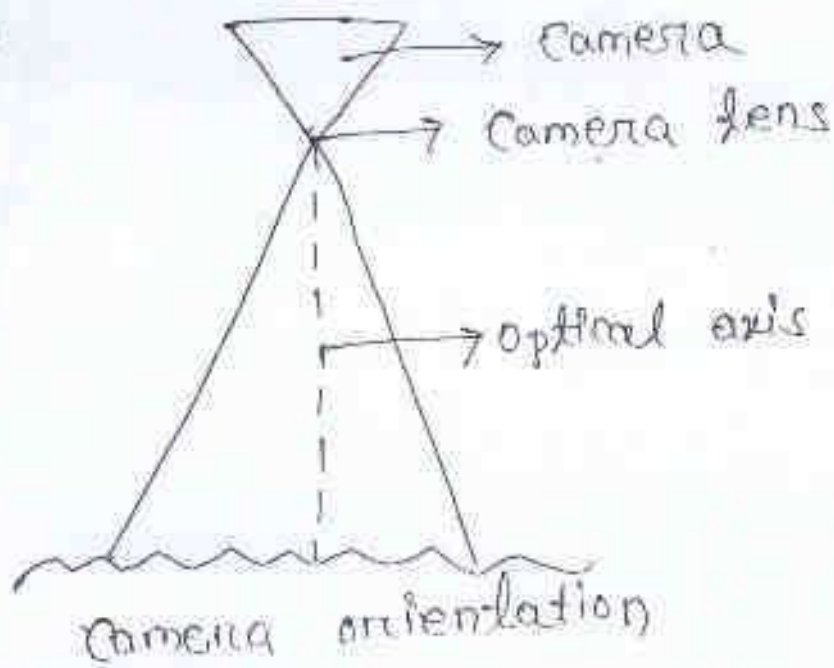 camera
camera lens
optical axis
camera orientation